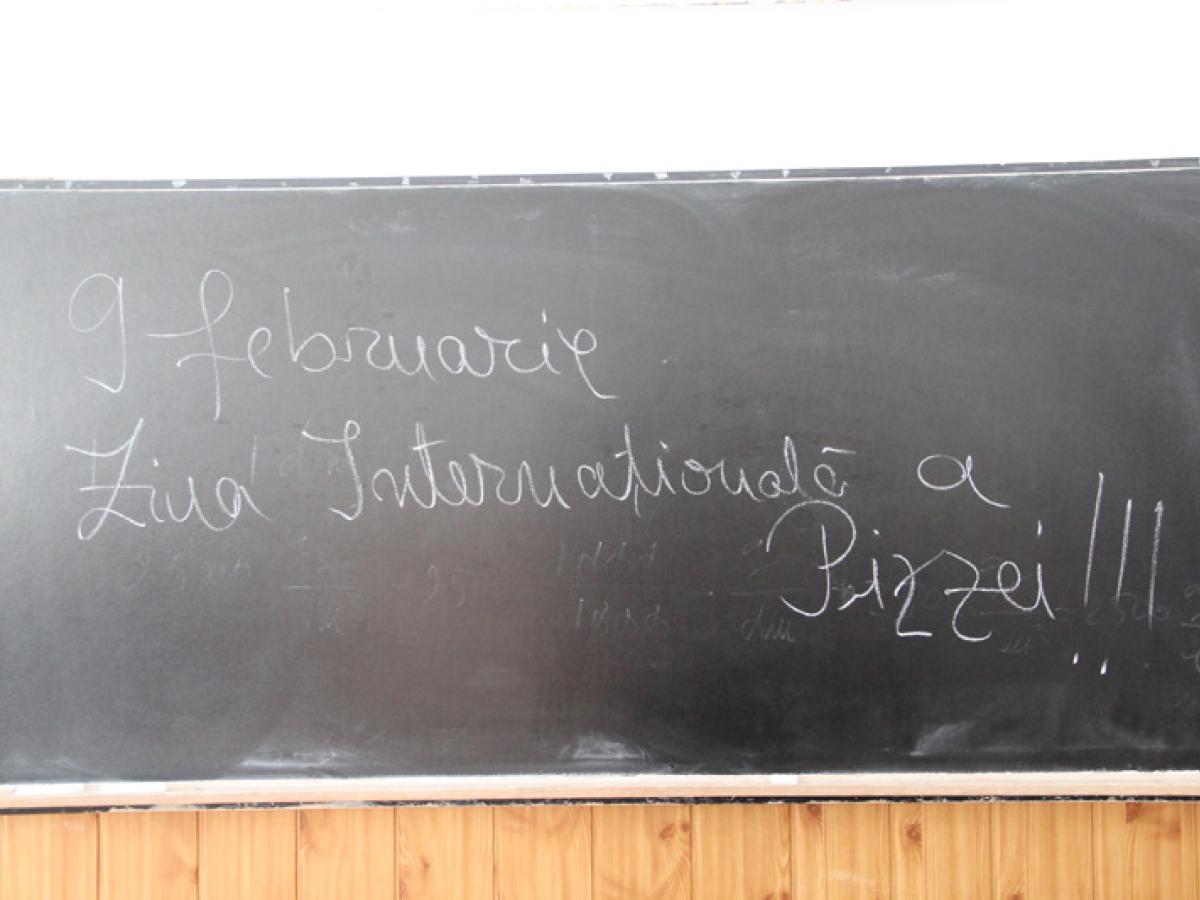 9 februarie
Ziua Internațională a
Pizzei!!!